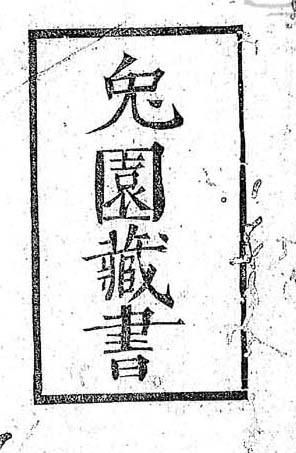 兔園藏書